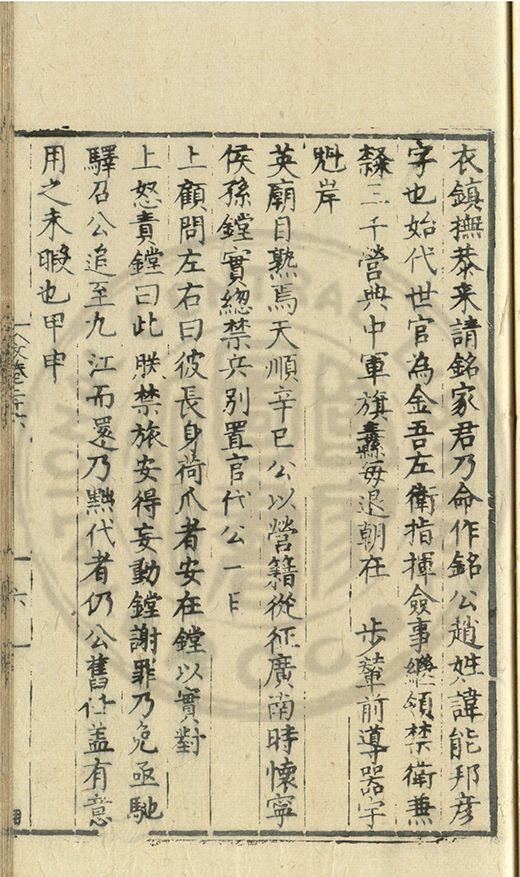 衣鎮撫恭来請銘家君乃命作銘公趙姓諱能邦彦
字也始代世官為金吾左衛指揮僉事繼領禁衛兼
隸三千營典中軍旗纛每退朝在 步輦前導器宇
魁岸
英廟目熟焉天順辛巳公以營籍從征廣南時懷寧
侯孫鏜實總禁兵別置官代公一日
上顧問左右曰彼長身荷爪者安在鏜以實對
上怒責鏜曰此朕禁旅安得妄動鏜謝罪乃免亟馳
驛召公追至九江而還乃黜代者仍公舊任盖有意
用之未暇也甲申
六